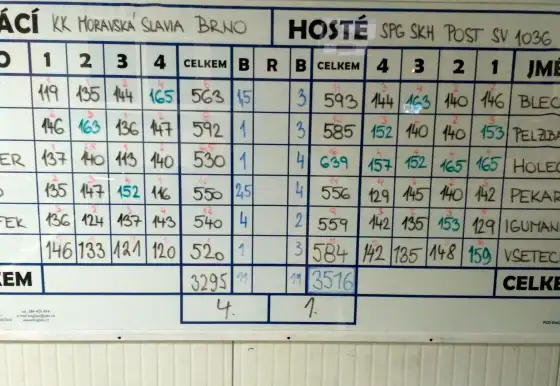 ÁCÍ KK MORAVSKÁ SLAVIA BRNO HOSTÉ SPG SKH POST SV 1036
O 1 2 3 4 CELKEM B R B CELKEM 4 3 2 1 JMÉ
119 135 144 165 563 1,5 3 593 144 163 140 146 BLEC
146 163 136 147 592 1 3 585 152 140 140 153 PELZBA
ER 137 140 113 140 530 1 4 639 157 152 165 165 HOLEC
135 147 152 116 550 2,5 4 556 129 145 140 142 PEKAR
FEK 136 124 137 143 540 4 2 559 142 135 153 129 IGUMAN
146 133 121 120 520 1 3 584 142 135 148 159 VSETEC
KEM 3295 11 19 3516 CELKE
4. 1.